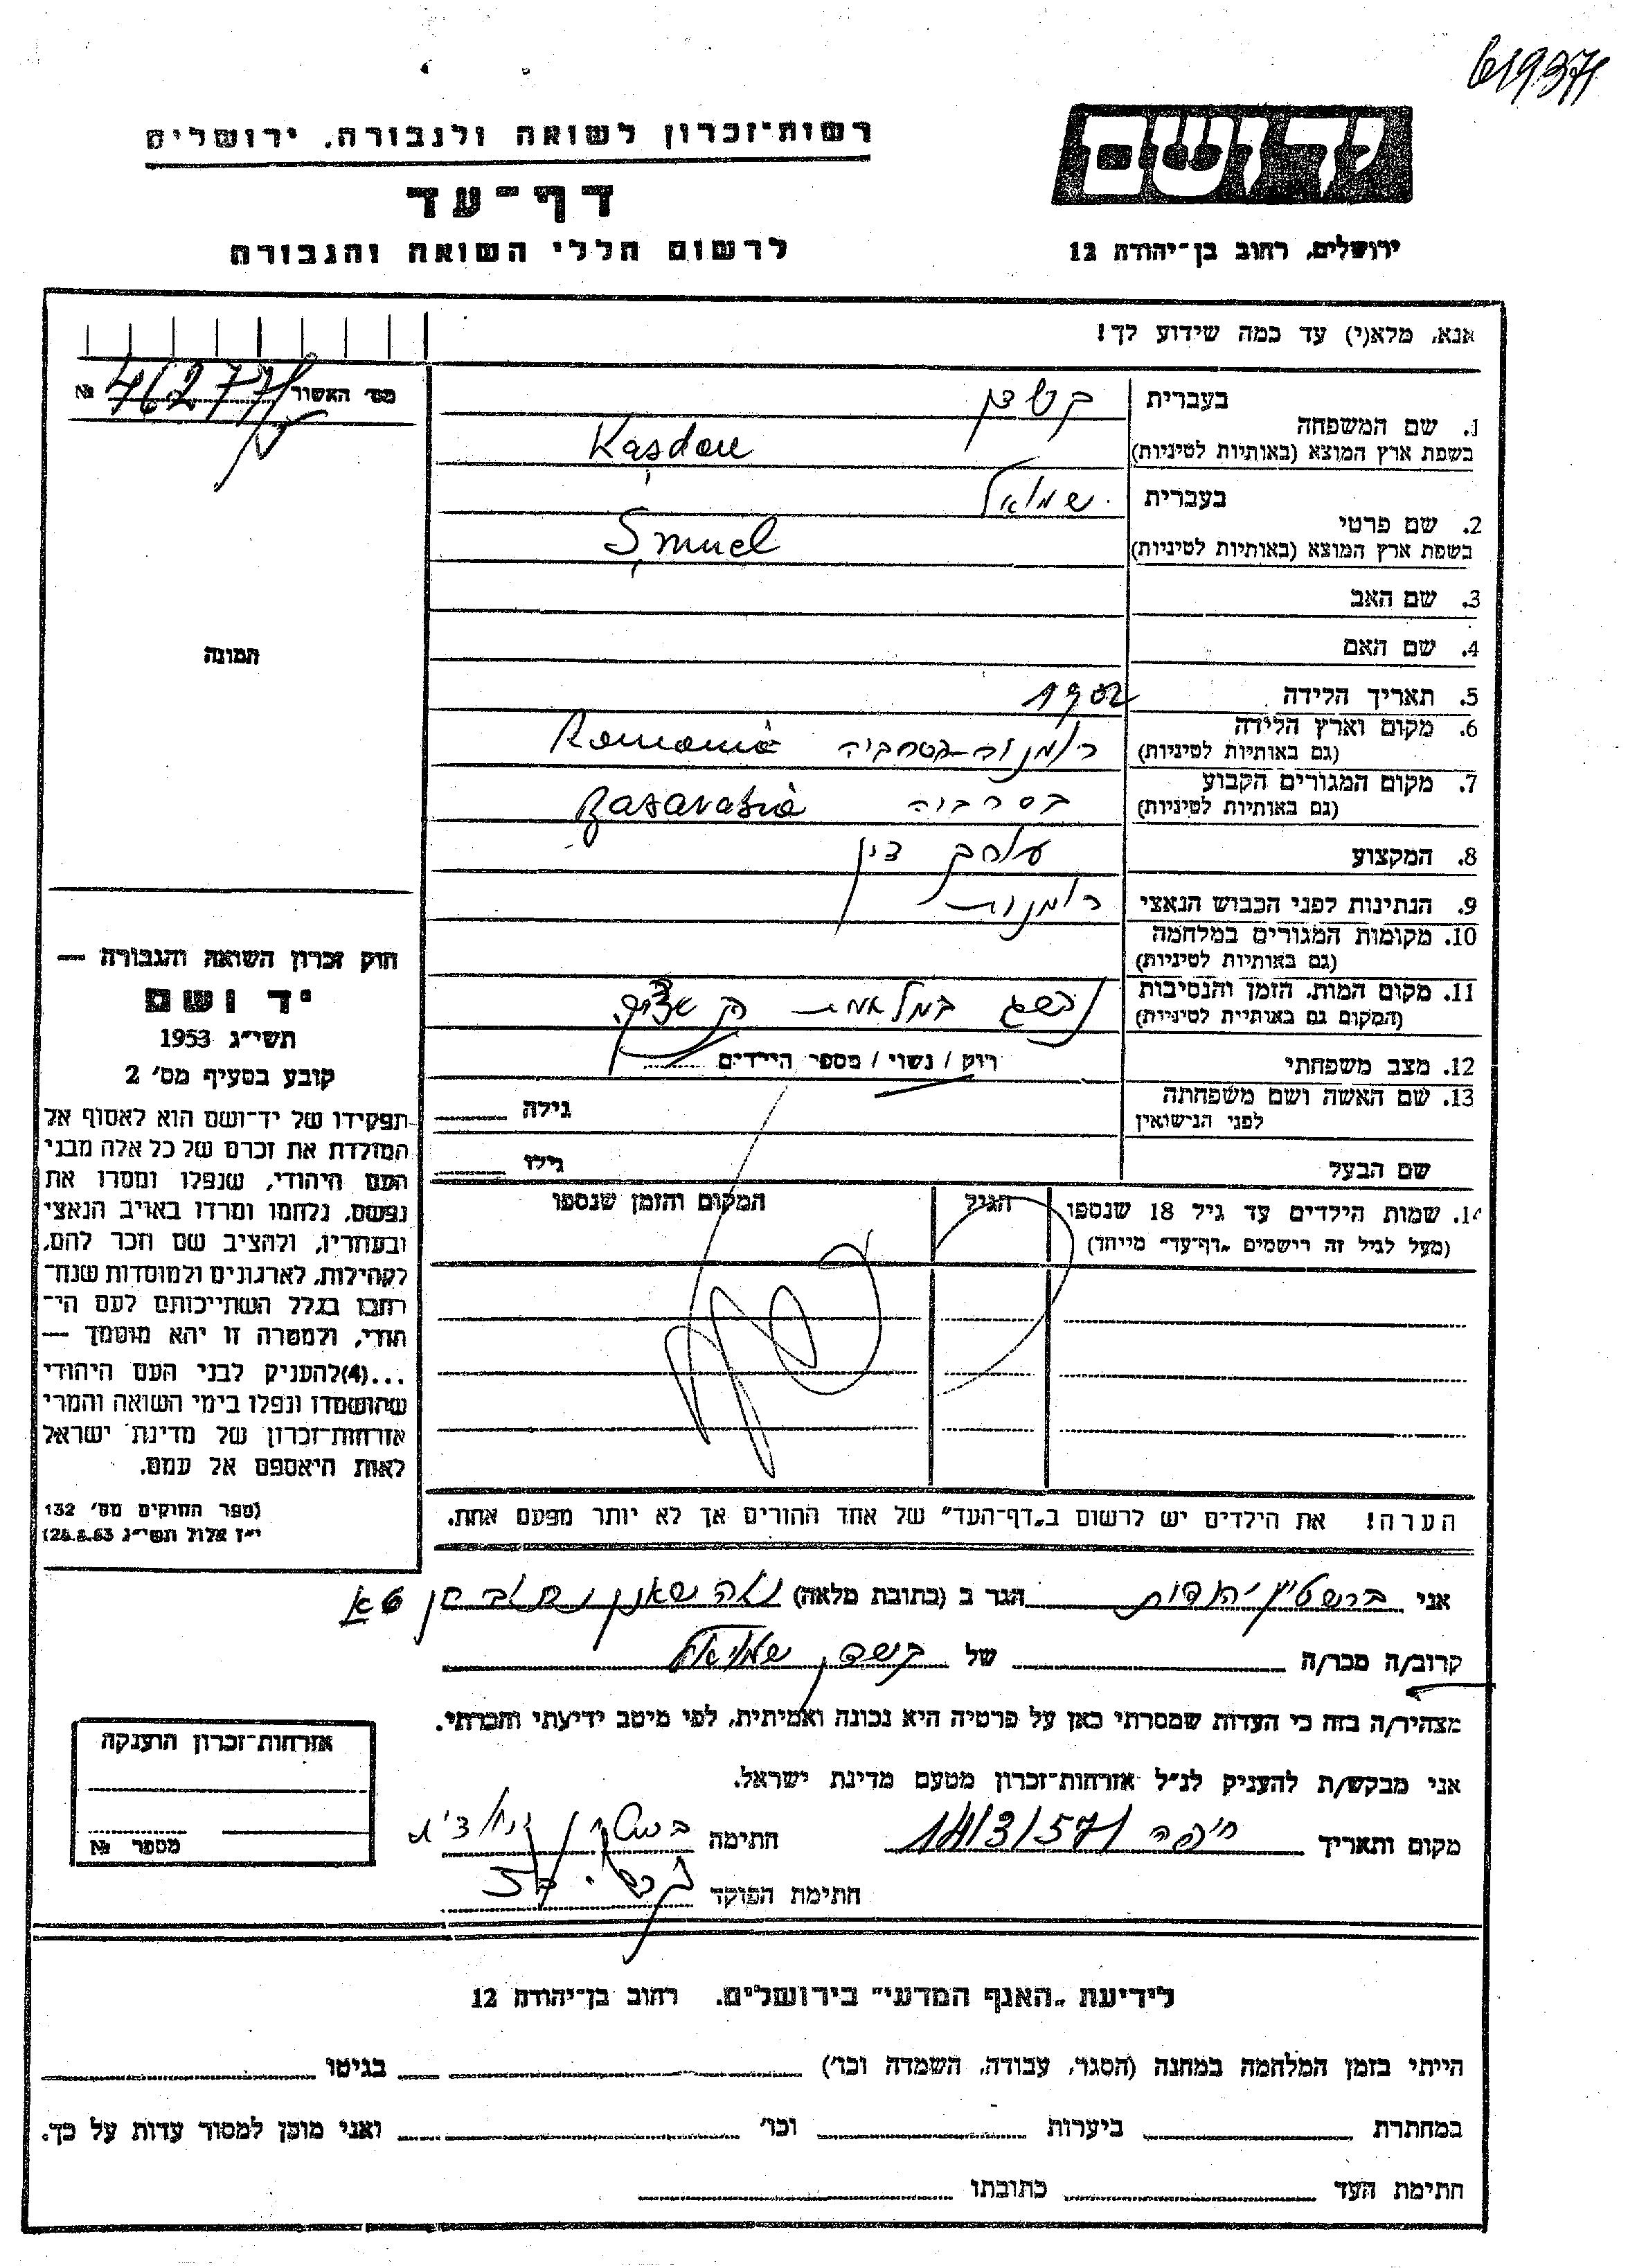 619371
רשות־זכרון לשואה ולגבורה, ירושלים
יד ושם
דף־עד
לרשום חללי השואה והגבורה
ירושלים, רחוב בן־יהודה 12
אנא, מלא(י) עד כמה שידוע לך!
מס׳ האשור № 46277
1. שם המשפחה
בעברית קשדן
בשפת ארץ המוצא (באותיות לטיניות) Kaşdan
2. שם פרטי
בעברית שמואל
בשפת ארץ המוצא (באותיות לטיניות) Şmuel
3. שם האב
4. שם האם
תמונה
5. תאריך הלידה 1902
6. מקום וארץ הלידה
(גם באותיות לטיניות) Romania
7. מקום המגורים הקבוע
(גם באותיות לטיניות) בסרביה Basarabia
8. המקצוע עורך דין
9. הנתינות לפני הכבוש הנאצי רומנית
10. מקומות המגורים במלחמה
(גם באותיות לטיניות)
11. מקום המות, הזמן והנסיבות
(המקום גם באותיות לטיניות)
12. מצב משפחתי רוק / נשוי / מספר הילדים
13. שם האשה ושם משפחתה
לפני הנישואין
גילה
שם הבעל גילו
14. שמות הילדים עד גיל 18 שנספו הגיל המקום והזמן שנספו
(מעל לגיל זה רישמים „דף־עד״ מייחד)
הערה! את הילדים יש לרשום ב„דף־העד״ של אחד ההורים אך לא יותר מפעם אחת.
חוק זכרון השואה והגבורה —
יד ושם
תשי״ג 1953
קובע בסעיף מס׳ 2
תפקידו של יד־ושם הוא לאסוף אל
המולדת את זכרם של כל אלה מבני
העם היהודי, שנפלו ומסרו את
נפשם, נלחמו ומרדו באויב הנאצי
ובעוזריו, ולהציב שם וזכר להם,
לקהילות, לארגונים ולמוסדות שנח־
רבו בגלל השתייכותם לעם הי־
הודי, ולמטרה זו יהא מוסמך —
...(4)להעניק לבני העם היהודי
שהושמדו ונפלו בימי השואה והמרי
אזרחות־זכרון של מדינת ישראל
לאות היאספם אל עמם.
(ספר החוקים מס׳ 132
י״ז אלול תשי״ג 28.8.53)
אני ברשטין יהודית הגר ב (כתובת מלאה) נוה שאנן
קרוב/ה מכר/ה של קשדן שמואל
מצהיר/ה בזה כי העדות שמסרתי כאן על פרטיה היא נכונה ואמיתית, לפי מיטב ידיעתי והכרתי.
אני מבקש/ת להעניק לנ״ל אזרחות־זכרון מטעם מדינת ישראל.
מקום ותאריך חיפה 14/3/57 חתימה
חתימת הפוקד
אזרחות־זכרון הוענקה
מספר №
לידיעת „האגף המדעי״ בירושלים. רחוב בן־יהודה 12
הייתי בזמן המלחמה במחנה (הסגר, עבודה, השמדה וכו׳) בגיטו
במחתרת ביערות וכו׳ ואני מוכן למסור עדות על כך.
חתימת העד כתובתו